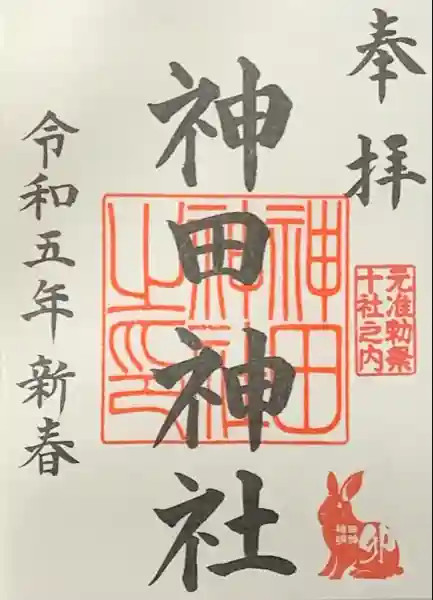 奉拝
神田神社
神田神社之印
元准勅祭
十社之内
卯
令和五年新春